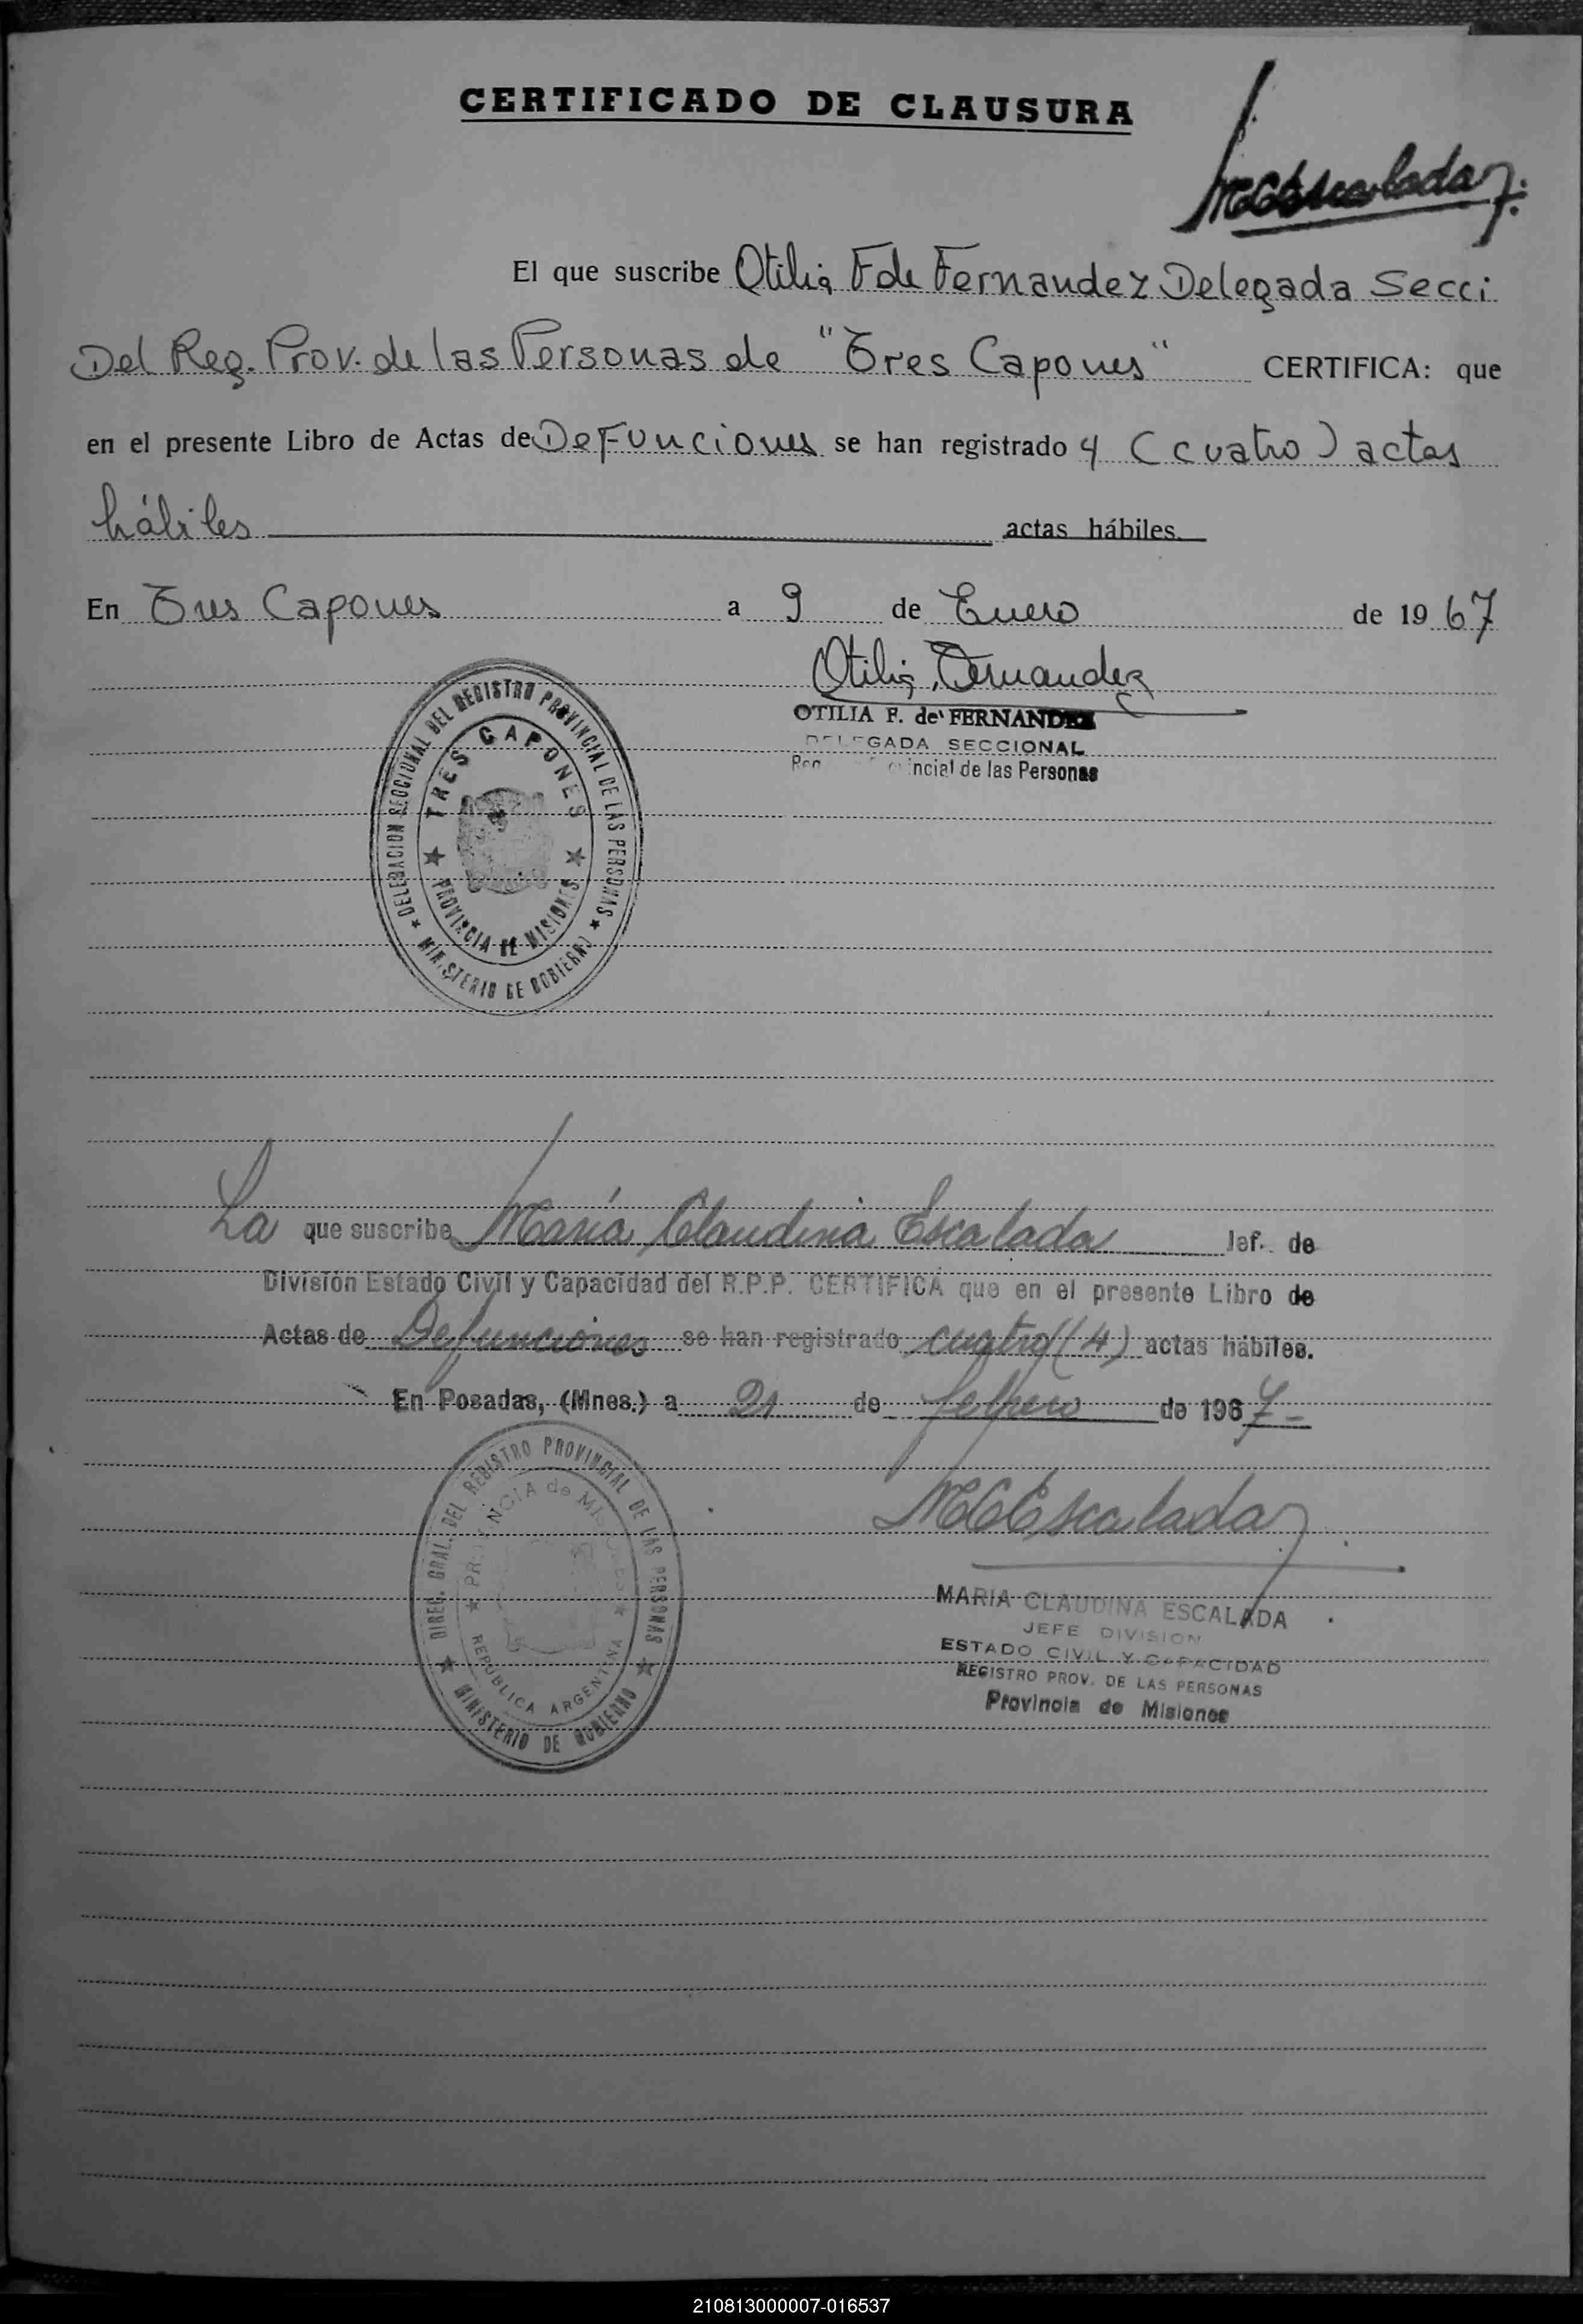 CERTIFICADO DE CLAUSURA
MCEscalada
El que suscribe Otilia F de Fernandez Delegada Secci
Del Reg. Prov. de las Personas de "Tres Capones" CERTIFICA: que
en el presente Libro de Actas de Defunciones se han registrado 4 (cuatro) actas
hábiles actas hábiles
En Tres Capones a 9 de Enero de 1967
Otilia Fernandez
OTILIA F. de FERNANDEZ
DELEGADA SECCIONAL
incial de las Personas
DELEGACION SECCIONAL DEL REGISTRO PROVINCIAL DE LAS PERSONAS
MINISTERIO DE GOBIERNO
TRES CAPONES
PROVINCIA DE MISIONES
La que suscribe María Claudina Escalada Jef. de
División Estado Civil y Capacidad del R.P.P. CERTIFICA que en el presente Libro de
Actas de Defunciones se han registrado cuatro (4) actas hábiles.
En Posadas, (Mnes.) a 21 de febrero de 1967-
MCEscalada
MARIA CLAUDINA ESCALADA
JEFE DIVISION
ESTADO CIVIL Y CAPACIDAD
REGISTRO PROV. DE LAS PERSONAS
Provincia de Misiones
DIREC. GRAL. DEL REGISTRO PROVINCIAL DE LAS PERSONAS
MINISTERIO DE GOBIERNO
PROVINCIA de MISIONES
REPUBLICA ARGENTINA
210813000007-016537